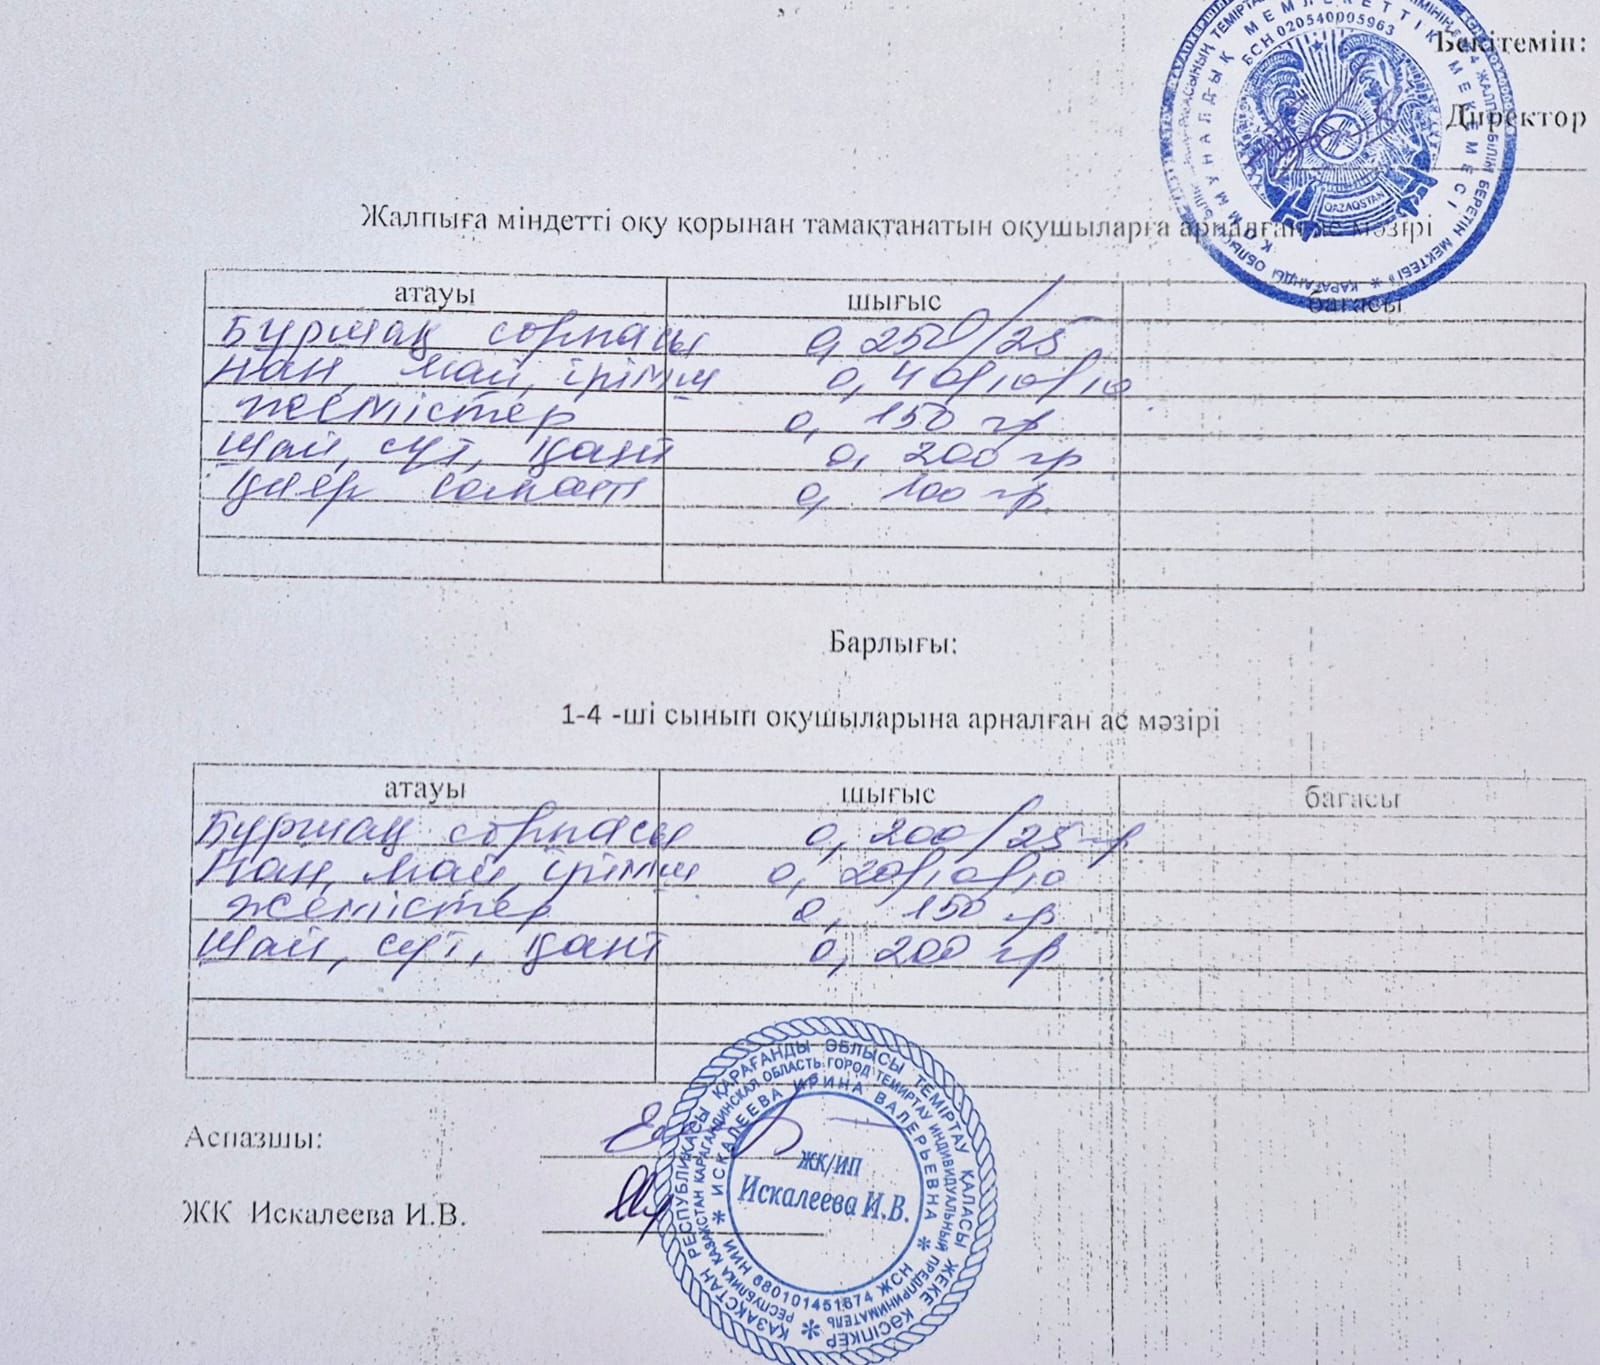 Бекітемін:
Директор
БСН 020540005963
КОММУНАЛДЫҚ МЕМЛЕКЕТТІК МЕКЕМЕСІ
QAZAQSTAN
Жалпыға міндетті оқу қорынан тамақтанатын оқушыларға арналған ас мәзірі
атауы шығыс бағасы
Бұршақ сорпасы 0, 250/25
Нан, май, ірімшік 0, 40/10/10
жемістер 0, 150 гр
Шай, сүт, қант 0, 200 гр
0, 100 гр.
Барлығы:
1-4 -ші сынып оқушыларына арналған ас мәзірі
атауы шығыс бағасы
Бұршақ сорпасы 0, 200/25 гр
Нан, май, ірімшік 0, 20/10/10
жемістер 0, 150 гр
Шай, сүт, қант 0, 200 гр
Аспазшы:
ЖК Искалеева И.В.
ҚАЗАҚСТАН РЕСПУБЛИКАСЫ ҚАРАҒАНДЫ ОБЛЫСЫ ТЕМІРТАУ ҚАЛАСЫ ЖЕКЕ КӘСІПКЕР
РЕСПУБЛИКА КАЗАХСТАН КАРАГАНДИНСКАЯ ОБЛАСТЬ ГОРОД ТЕМИРТАУ ИНДИВИДУАЛЬНЫЙ ПРЕДПРИНИМАТЕЛЬ
ИСКАЛЕЕВА ИРИНА ВАЛЕРЬЕВНА
ИИН 680101451674 ЖСН
ЖК/ИП
Искалеева И.В.